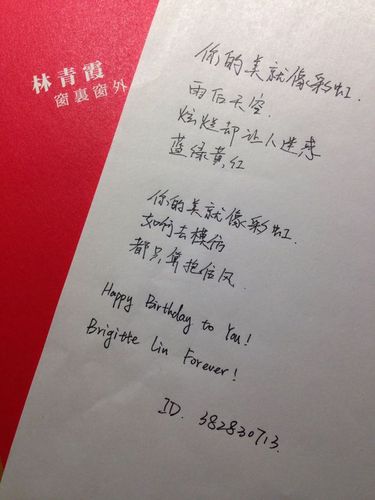 林青霞
窗裏窗外
你的美就像彩虹.
雨后天空.
炫烂却让人迷惑
蓝绿黄红
你的美就像彩虹.
如何去模仿
都只算抱信风.
Happy Birthday to You!
Brigitte Lin Forever!
ID. 382830713.